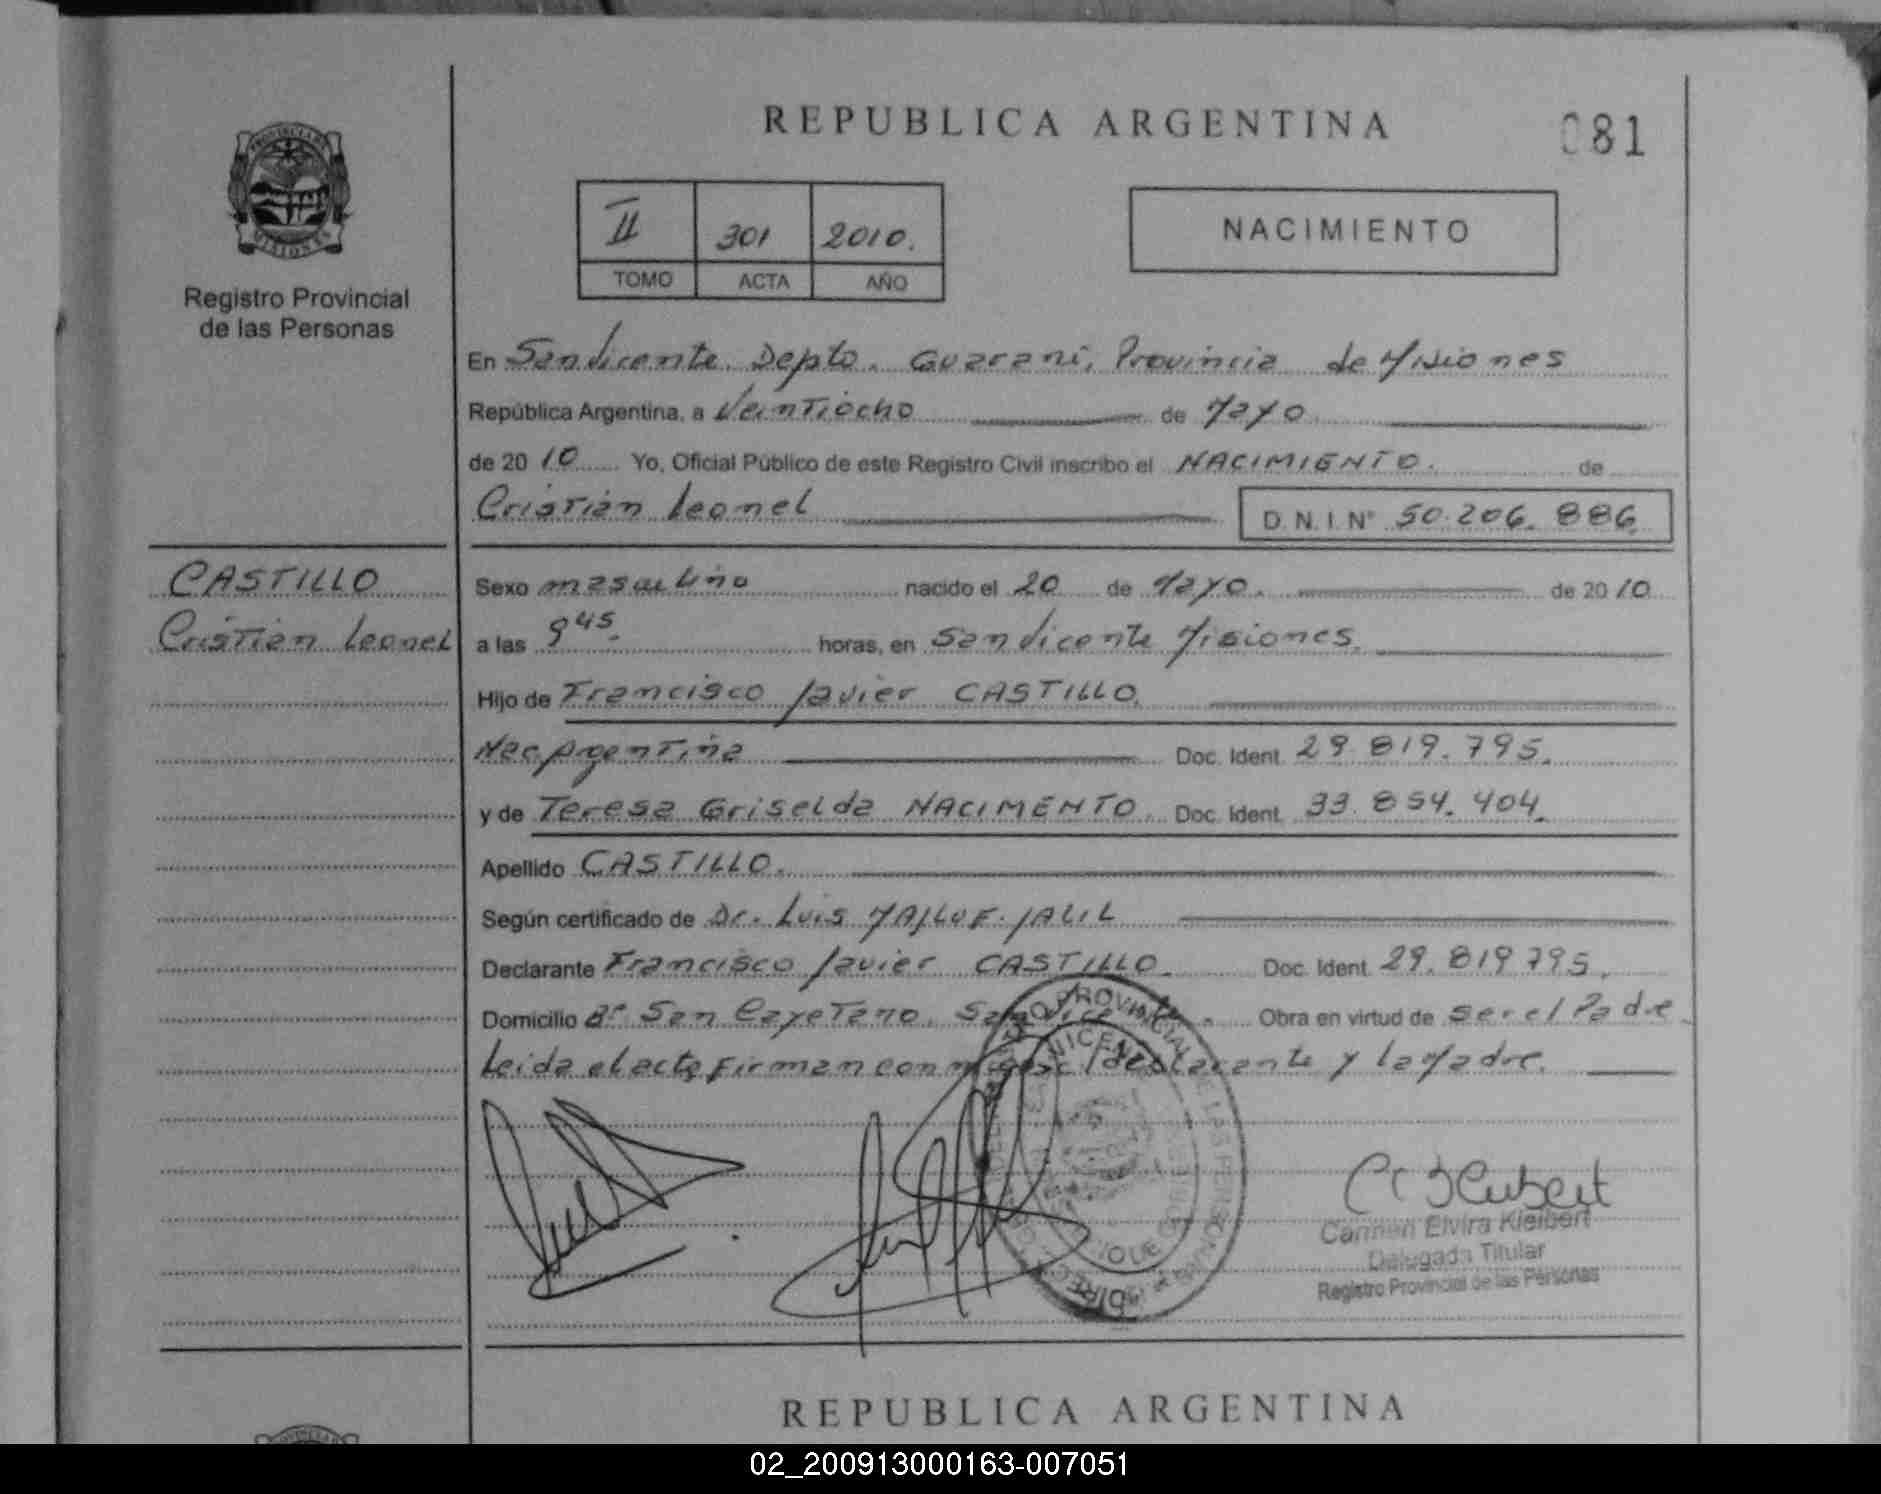 REPUBLICA ARGENTINA
081
PROVINCIA DE
MISIONES
Registro Provincial
de las Personas
II 301 2010.
TOMO ACTA AÑO
NACIMIENTO
En San Vicente. Depto. Guarani, Provincia de Misiones
República Argentina, a Veintiocho de Mayo
de 20 10 Yo, Oficial Público de este Registro Civil inscribo el NACIMIENTO. de
Cristian Leonel D.N.I.Nº 50.206.886.
CASTILLO
Cristian Leonel
Sexo masculino nacido el 20 de Mayo. de 20 10
a las 9 45. horas, en San Vicente Misiones.
Hijo de Francisco Javier CASTILLO.
Nac. Argentina Doc. Ident. 29.819.795.
y de Teresa Griselda NACIMENTO. Doc. Ident. 33.854.404.
Apellido CASTILLO.
Según certificado de Dr. Luis JALIL
Declarante Francisco Javier CASTILLO. Doc. Ident. 29.819.795.
Domicilio Bº San Cayetano. San Vicente. Obra en virtud de ser el Padre
Leida el acta, firman conmigo el declarante y la Madre.
Carmen Elvira Kleibert
Delegada Titular
Registro Provincial de las Personas
REPUBLICA ARGENTINA
02_200913000163-007051